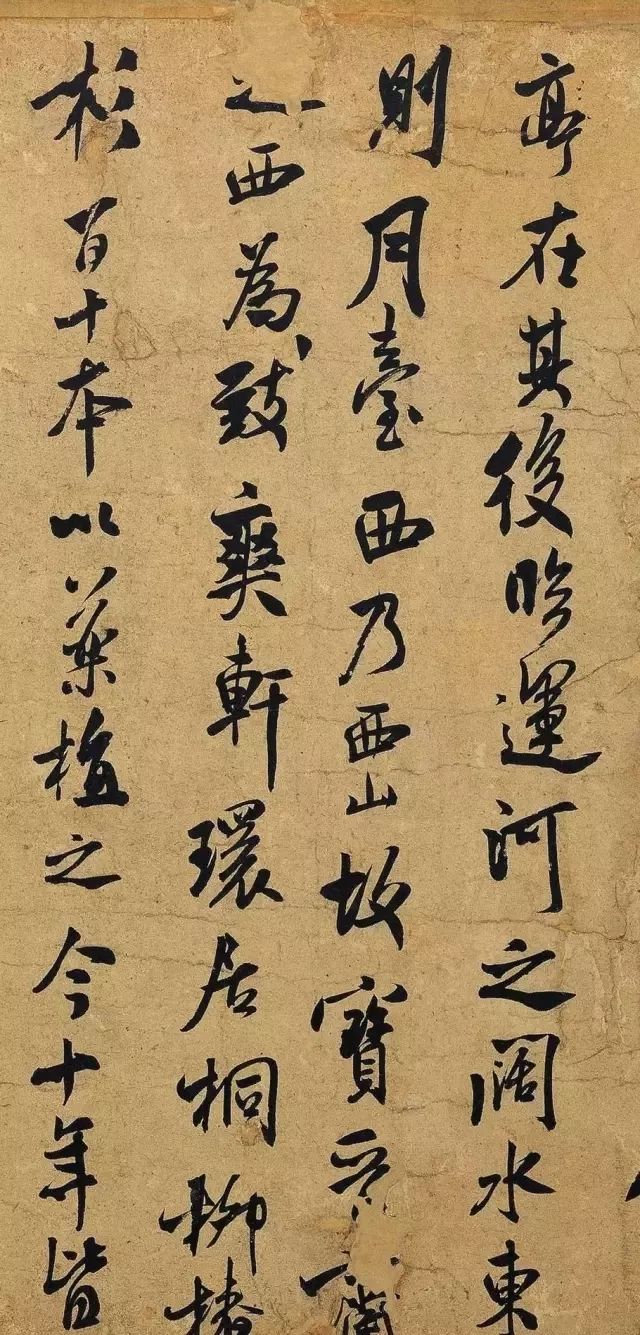 亭在其後吟運河之闊水東
則月臺西乃西山故寶晉齋
之西為致爽軒環居桐柳椿
杉百十本以葉植之今十年皆